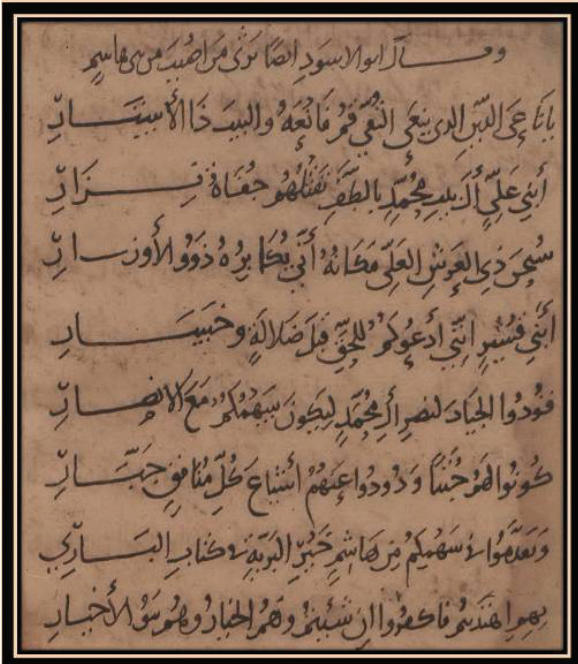 وقال ابو الاسود ايضا يرثى من اصيب من بنى هاشم
يا ناعى الدين الذى ينعى التقى قم فانعه والبيت ذا الأستار
أبنى علي أل بيت محمد بالطف تقتلهم جفاة نزار
سبحن ذى العرش العلى مكانه أنى يكابره ذوو الأوزار
أبنى قشير إننى أدعوكم للحق قبل ضلالة وخسار
قودوا الجياد لنصر أل محمد ليكون سهمكم مع الانصار
كونوا لهم جننا وذودوا عنهم أشياع كل منافق جبار
وتقدموا فى سهمكم من هاشم خير البرية فى كتاب البارى
بهم اهتديتم فاكفروا ان شئتم وهم الخيار وهم بنو الأخيار